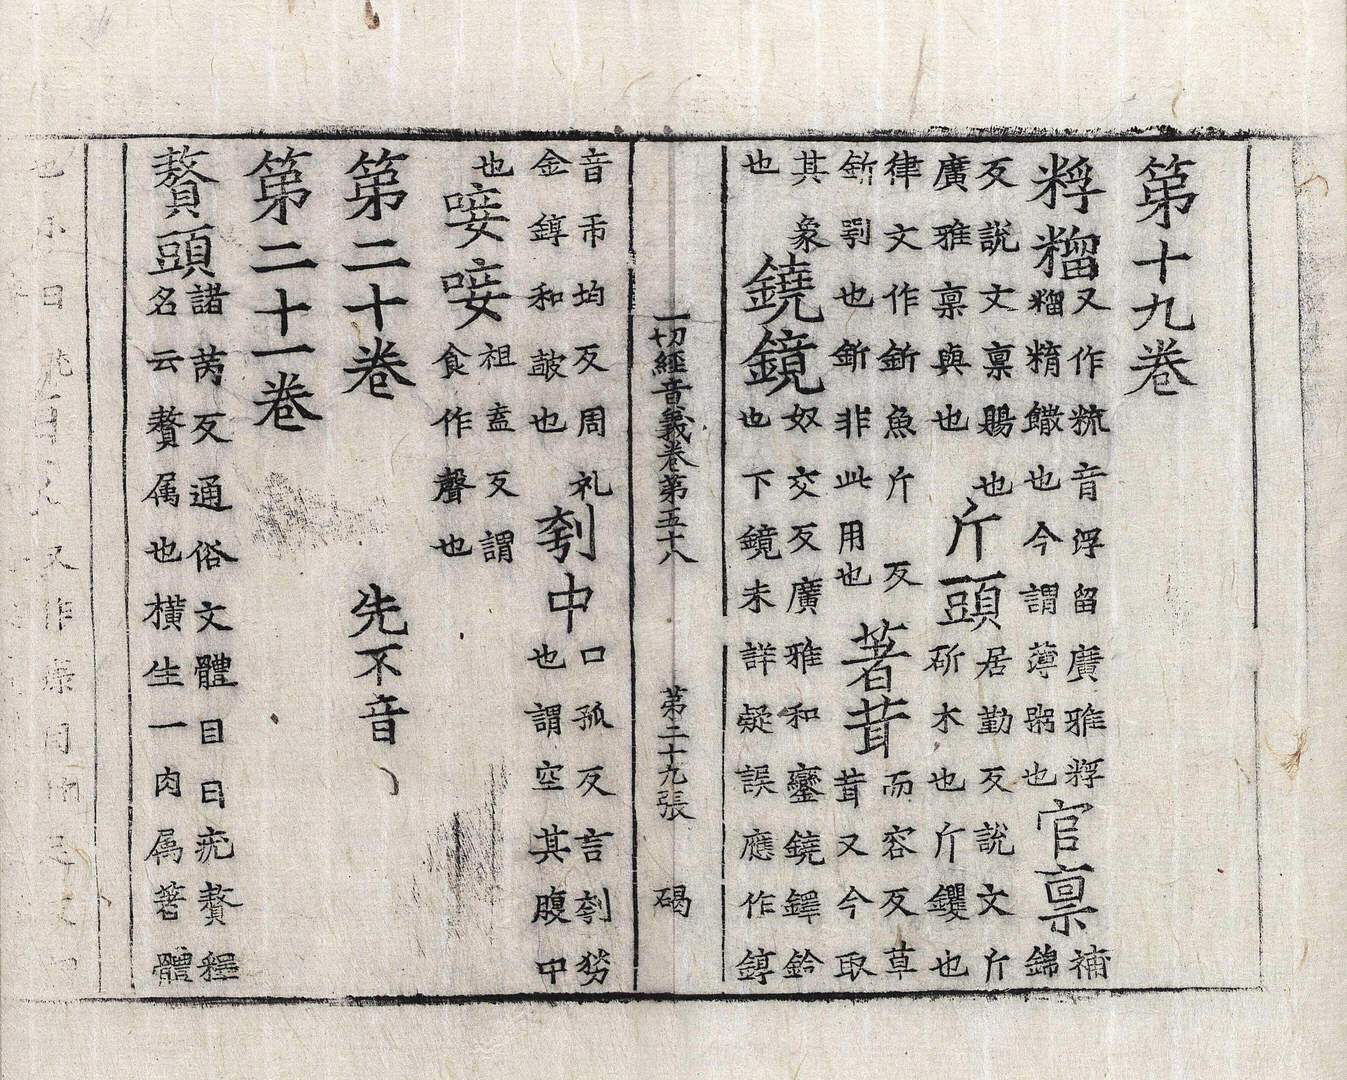 第十九卷
粰𥻳
又作𥹷音浮留廣雅粰
𥻳糈饊也今謂薄粥也
官稟
補
錦
反說文稟賜也
廣雅稟與也
斤頭
居勤反說文斤
斫木也斤钁也
律文作釿魚斤反
釿也釿非此用也
著茸
而容反草
茸又今取
其象
也
鐃鏡
奴交反廣雅和鑾鐃鐸鈴
也下鏡未詳疑誤應作錞
一切經音義卷第五十八 第三十九張 碣
音市均反周礼
金錞和皷也
刳中
口孤反言刳剺
也謂空其腹中
也
唼唼
祖盍反謂
食作聲也
第二十卷 先不音
第二十一卷
贅頭
諸芮反通俗文體目曰疣贅釋
名云贅属也橫生一肉属著體